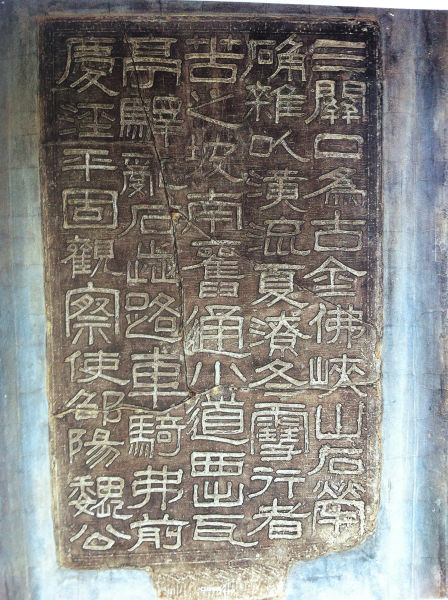 三關口為古金佛峽山石犖
确雜以潢流夏潦冬雪行者
苦之坡南舊通小道瓦
亭驛亂石路車騎弗前
慶涇平固觀察使邵陽魏公